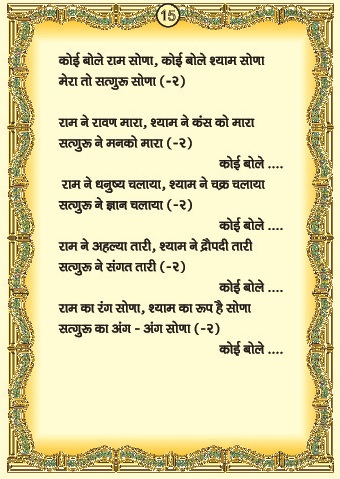 15
कोई बोले राम सोणा, कोई बोले श्याम सोणा
मेरा तो सत्गुरू सोणा (-२)
राम ने रावण मारा, श्याम ने कंस को मारा
सत्गुरू ने मनको मारा (-२)
कोई बोले ....
राम ने धनुष्य चलाया, श्याम ने चक्र चलाया
सत्गुरू ने ज्ञान चलाया (-२)
कोई बोले ....
राम ने अहल्या तारी, श्याम ने द्रौपदी तारी
सत्गुरू ने संगत तारी (-२)
कोई बोले ....
राम का रंग सोणा, श्याम का रूप है सोणा
सत्गुरू का अंग - अंग सोणा (-२)
कोई बोले ....